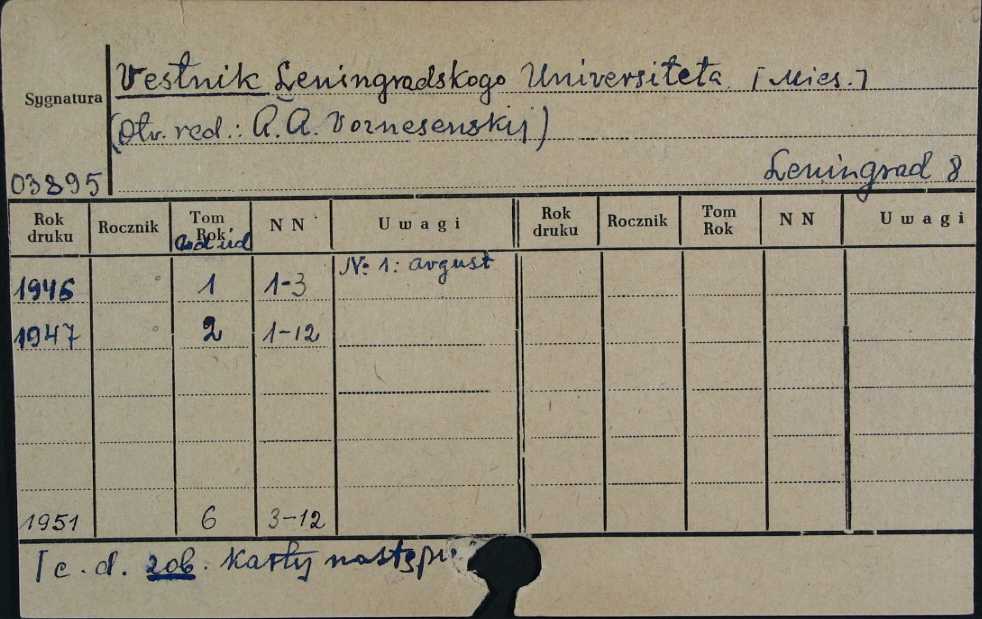 Vestnik Leningradskogo Universiteta. [Mies.]
Sygnatura
(Otv. red.: A. A. Voznesenskij)
03895 Leningrad 8
Rok druku Rocznik Tom Rok God izd N N Uwagi Rok druku Rocznik Tom Rok N N Uwagi
1946 1 1-3 № 1: avgust
1947 2 1-12
1951 6 3-12
[c. d. zob. karty